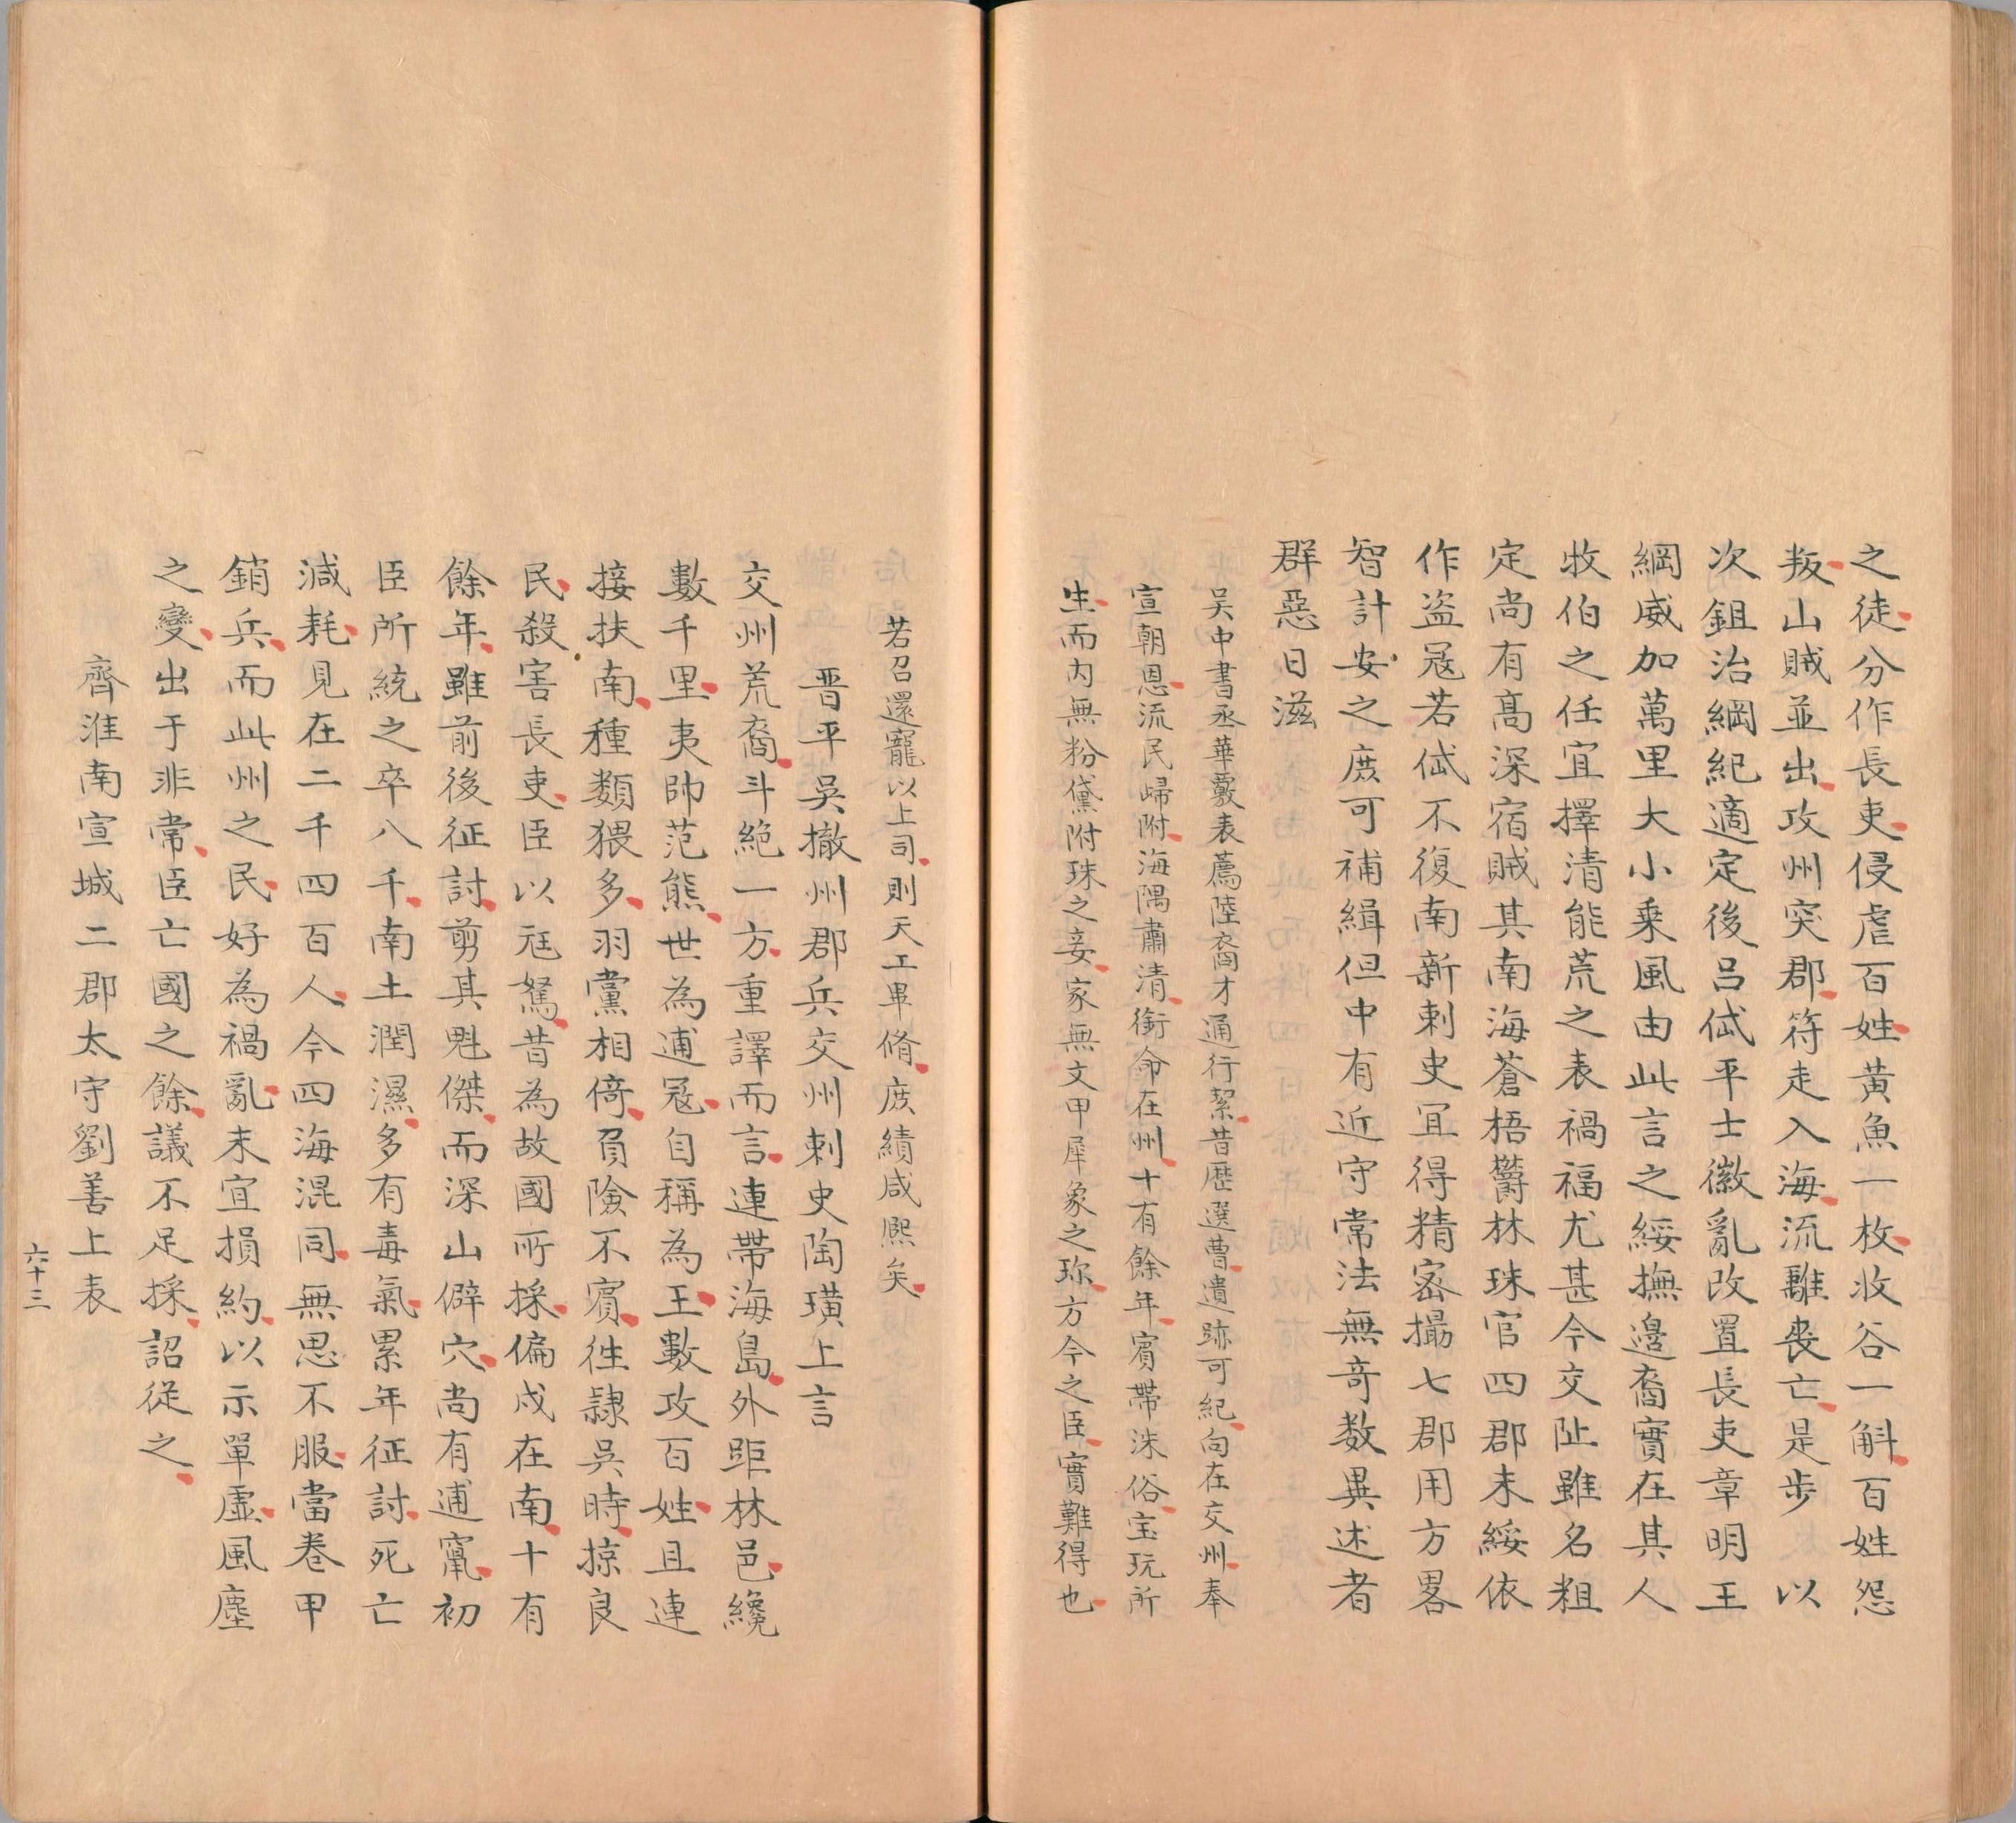 之徒分作長吏侵虐百姓黄魚一枚收谷一斛百姓怨
叛山賊並出攻州突郡符走入海流離喪亡是步以
次鉏治綱紀適定後吕岱平士徽亂改置長吏章明王
綱威加萬里大小乗風由此言之綏撫邊裔實在其人
牧伯之任宜擇清能荒之表禍福尤甚今交阯雖名粗
定尚有髙深宿賊其南海蒼梧欝林珠官四郡未綏依
作盗冦若岱不復南新刺史冝得精宻撮七郡用方畧
智計安之庶可補緝但中有近守常法無竒数異述者
群惡日滋
吴中書丞華覈表薦陸裔才通行絜昔歴選曹遺跡可紀向在交州奉
宣朝恩流民歸附海隅肅清銜命在州十有餘年賔帶洙俗宝玩所
生而内無粉黛附珠之妾家無文甲犀象之珎方今之臣實難得也
若召還寵以上司則天工畢脩庶績咸熙矣
晋平吴撤州郡兵交州刺史陶璜上言
交州荒裔斗絶一方重譯而言連帶海島外距林邑纔
數千里夷帥范熊世為逋冦自稱為王數攻百姓且連
接扶南種類猥多羽黨相倚負險不賔徃隷吴時掠良
民殺害長吏臣以尫駑昔為故國所採偏戍在南十有
餘年雖前後征討剪其魁傑而深山僻穴尚有逋竄初
臣所統之卒八千南土潤濕多有毒氣累年征討死亡
減耗見在二千四百人今四海混同無思不服當卷甲
銷兵而此州之民好為禍亂未宜損約以示單虚風塵
之變出于非常臣亡國之餘議不足採詔從之
齊淮南宣城二郡太守劉善上表
六十三